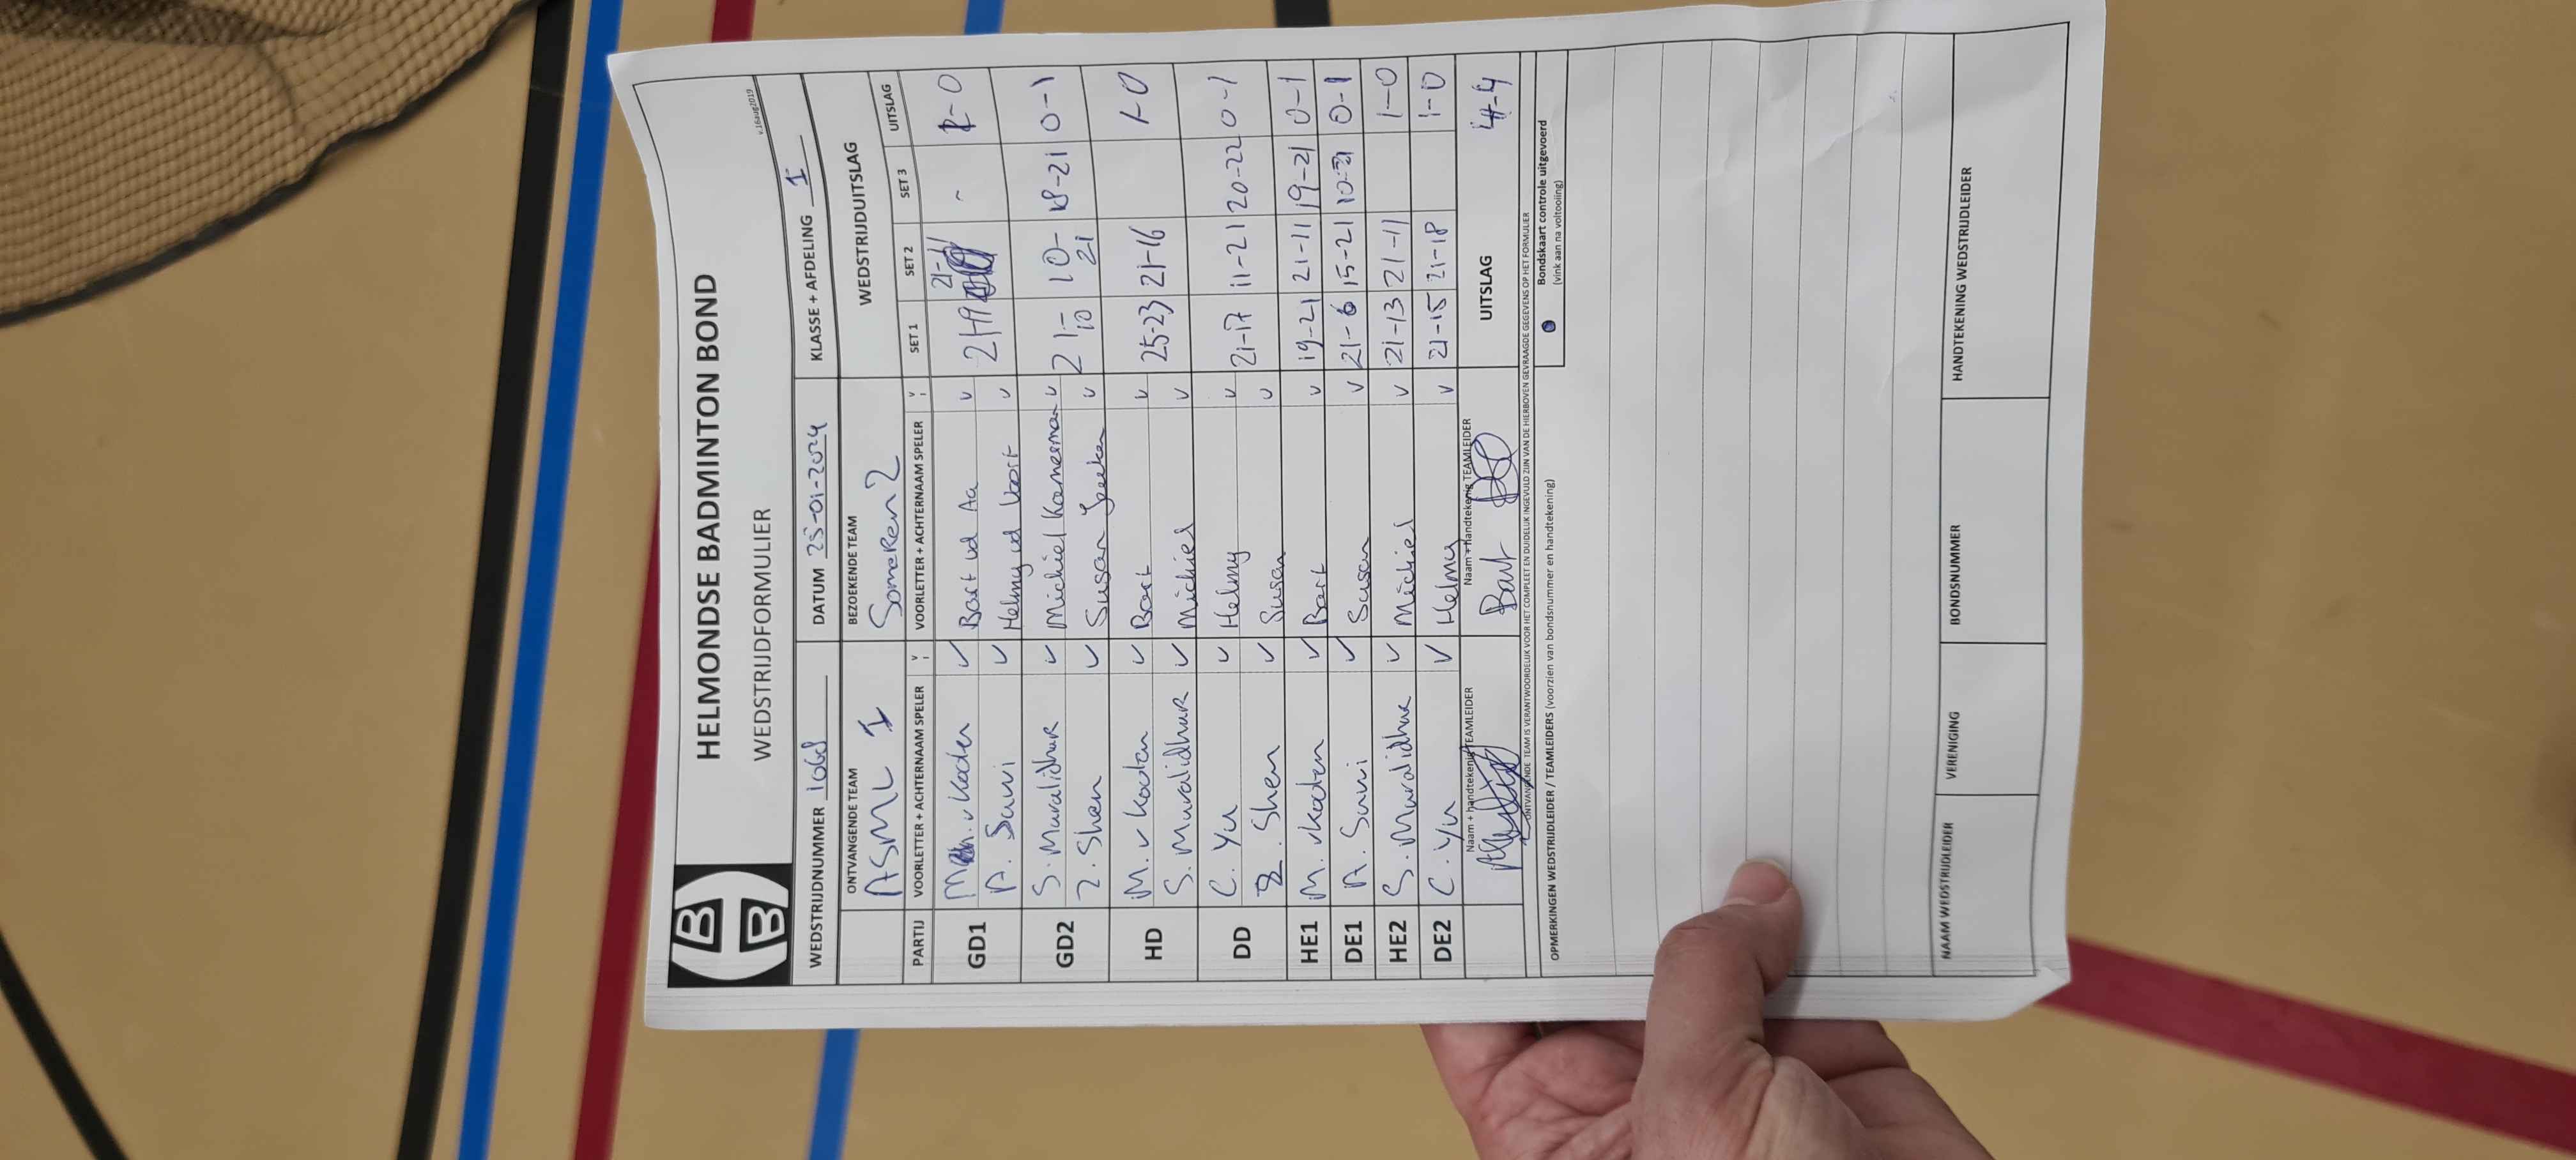 HELMONDSE BADMINTON BOND
WEDSTRIJDFORMULIER
v.16aug2019
WEDSTRIJDNUMMER 1068 DATUM 25-01-2024 KLASSE + AFDELING I
ONTVANGENDE TEAM BEZOEKENDE TEAM WEDSTRIJDUITSLAG
ASML I Someren 2
PARTIJ VOORLETTER + ACHTERNAAM SPELER V VOORLETTER + ACHTERNAAM SPELER V SET 1 SET 2 SET 3 UITSLAG
GD1 M. v Kaden v Bart vd Aa v 21-19 21-11 - 1-0
A. Saini v Helmy vd Voort v
GD2 S. Muralidhar v Michiel v 21-10 10-21 18-21 0-1
Z. Shen v Susan v
HD M. v Kaden v Bart v 25-23 21-16 1-0
S. Muralidhar v Michiel v
DD C. Yu v Helmy v 21-17 11-21 20-22 0-1
Z. Shen v Susan v
HE1 M. v Kaden v Bart v 19-21 21-11 19-21 0-1
DE1 A. Saini v Susan v 21-6 15-21 10-21 0-1
HE2 S. Muralidhar v Michiel v 21-13 21-11 1-0
DE2 C. Yu v Helmy v 21-15 21-18 1-0
Naam + handtekening TEAMLEIDER Naam + handtekenig TEAMLEIDER UITSLAG 4-4
Bart
ONTVANGENDE TEAM IS VERANTWOORDELIJK VOOR HET COMPLEET EN DUIDELIJK INGEVULD ZIJN VAN DE HIERBOVEN GEVRAAGDE GEGEVENS OP HET FORMULIER
OPMERKINGEN WEDSTRIJDLEIDER / TEAMLEIDERS (voorzien van bondsnummer en handtekening)
Bondskaart controle uitgevoerd
(vink aan na voltooiing)
NAAM WEDSTRIJDLEIDER VERENIGING BONDSNUMMER HANDTEKENING WEDSTRIJDLEIDER
BB